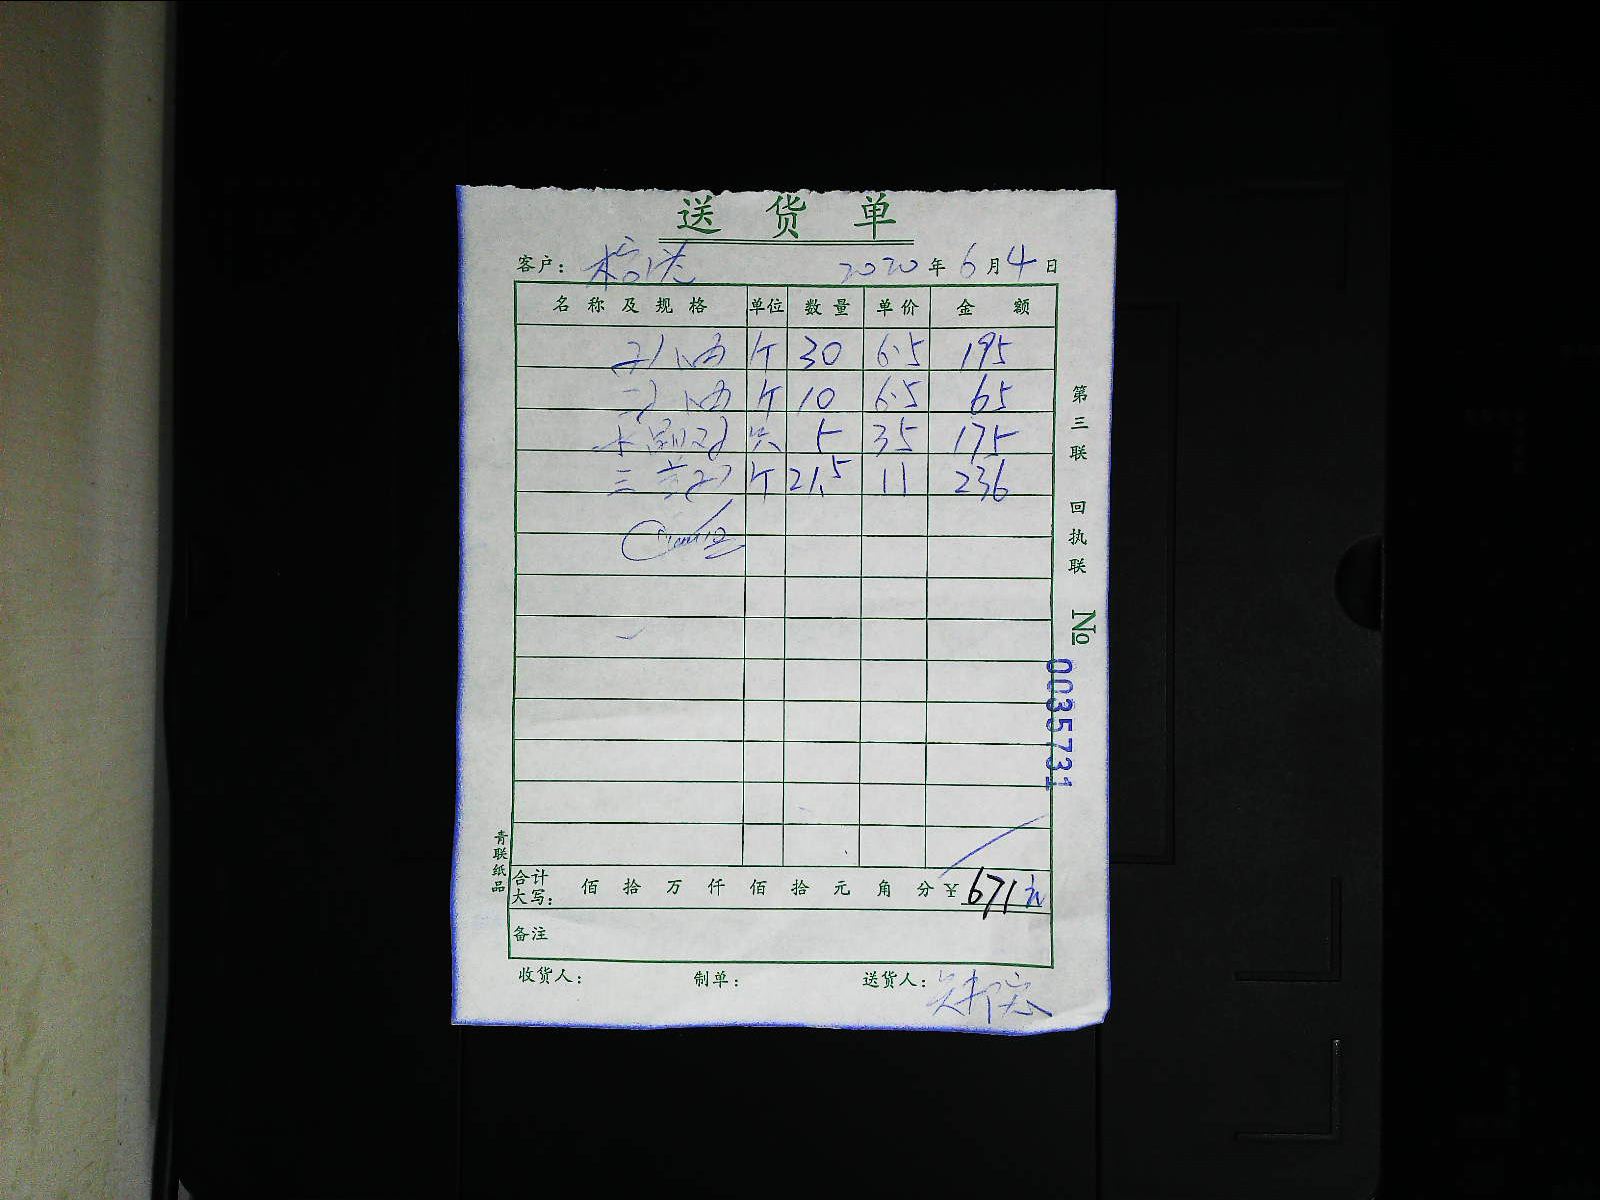 送货单
客户： 2020年6月4日
名称及规格 单位 数量 单价 金额
个 30 6.5 195
个 10 6.5 65
只 5 35 175
三 个 21.5 11 236
第三联 回执联
No 0035731
青联纸品
合计大写： 佰 拾 万 仟 佰 拾 元 角 分 ￥671元
备注
收货人： 制单： 送货人：